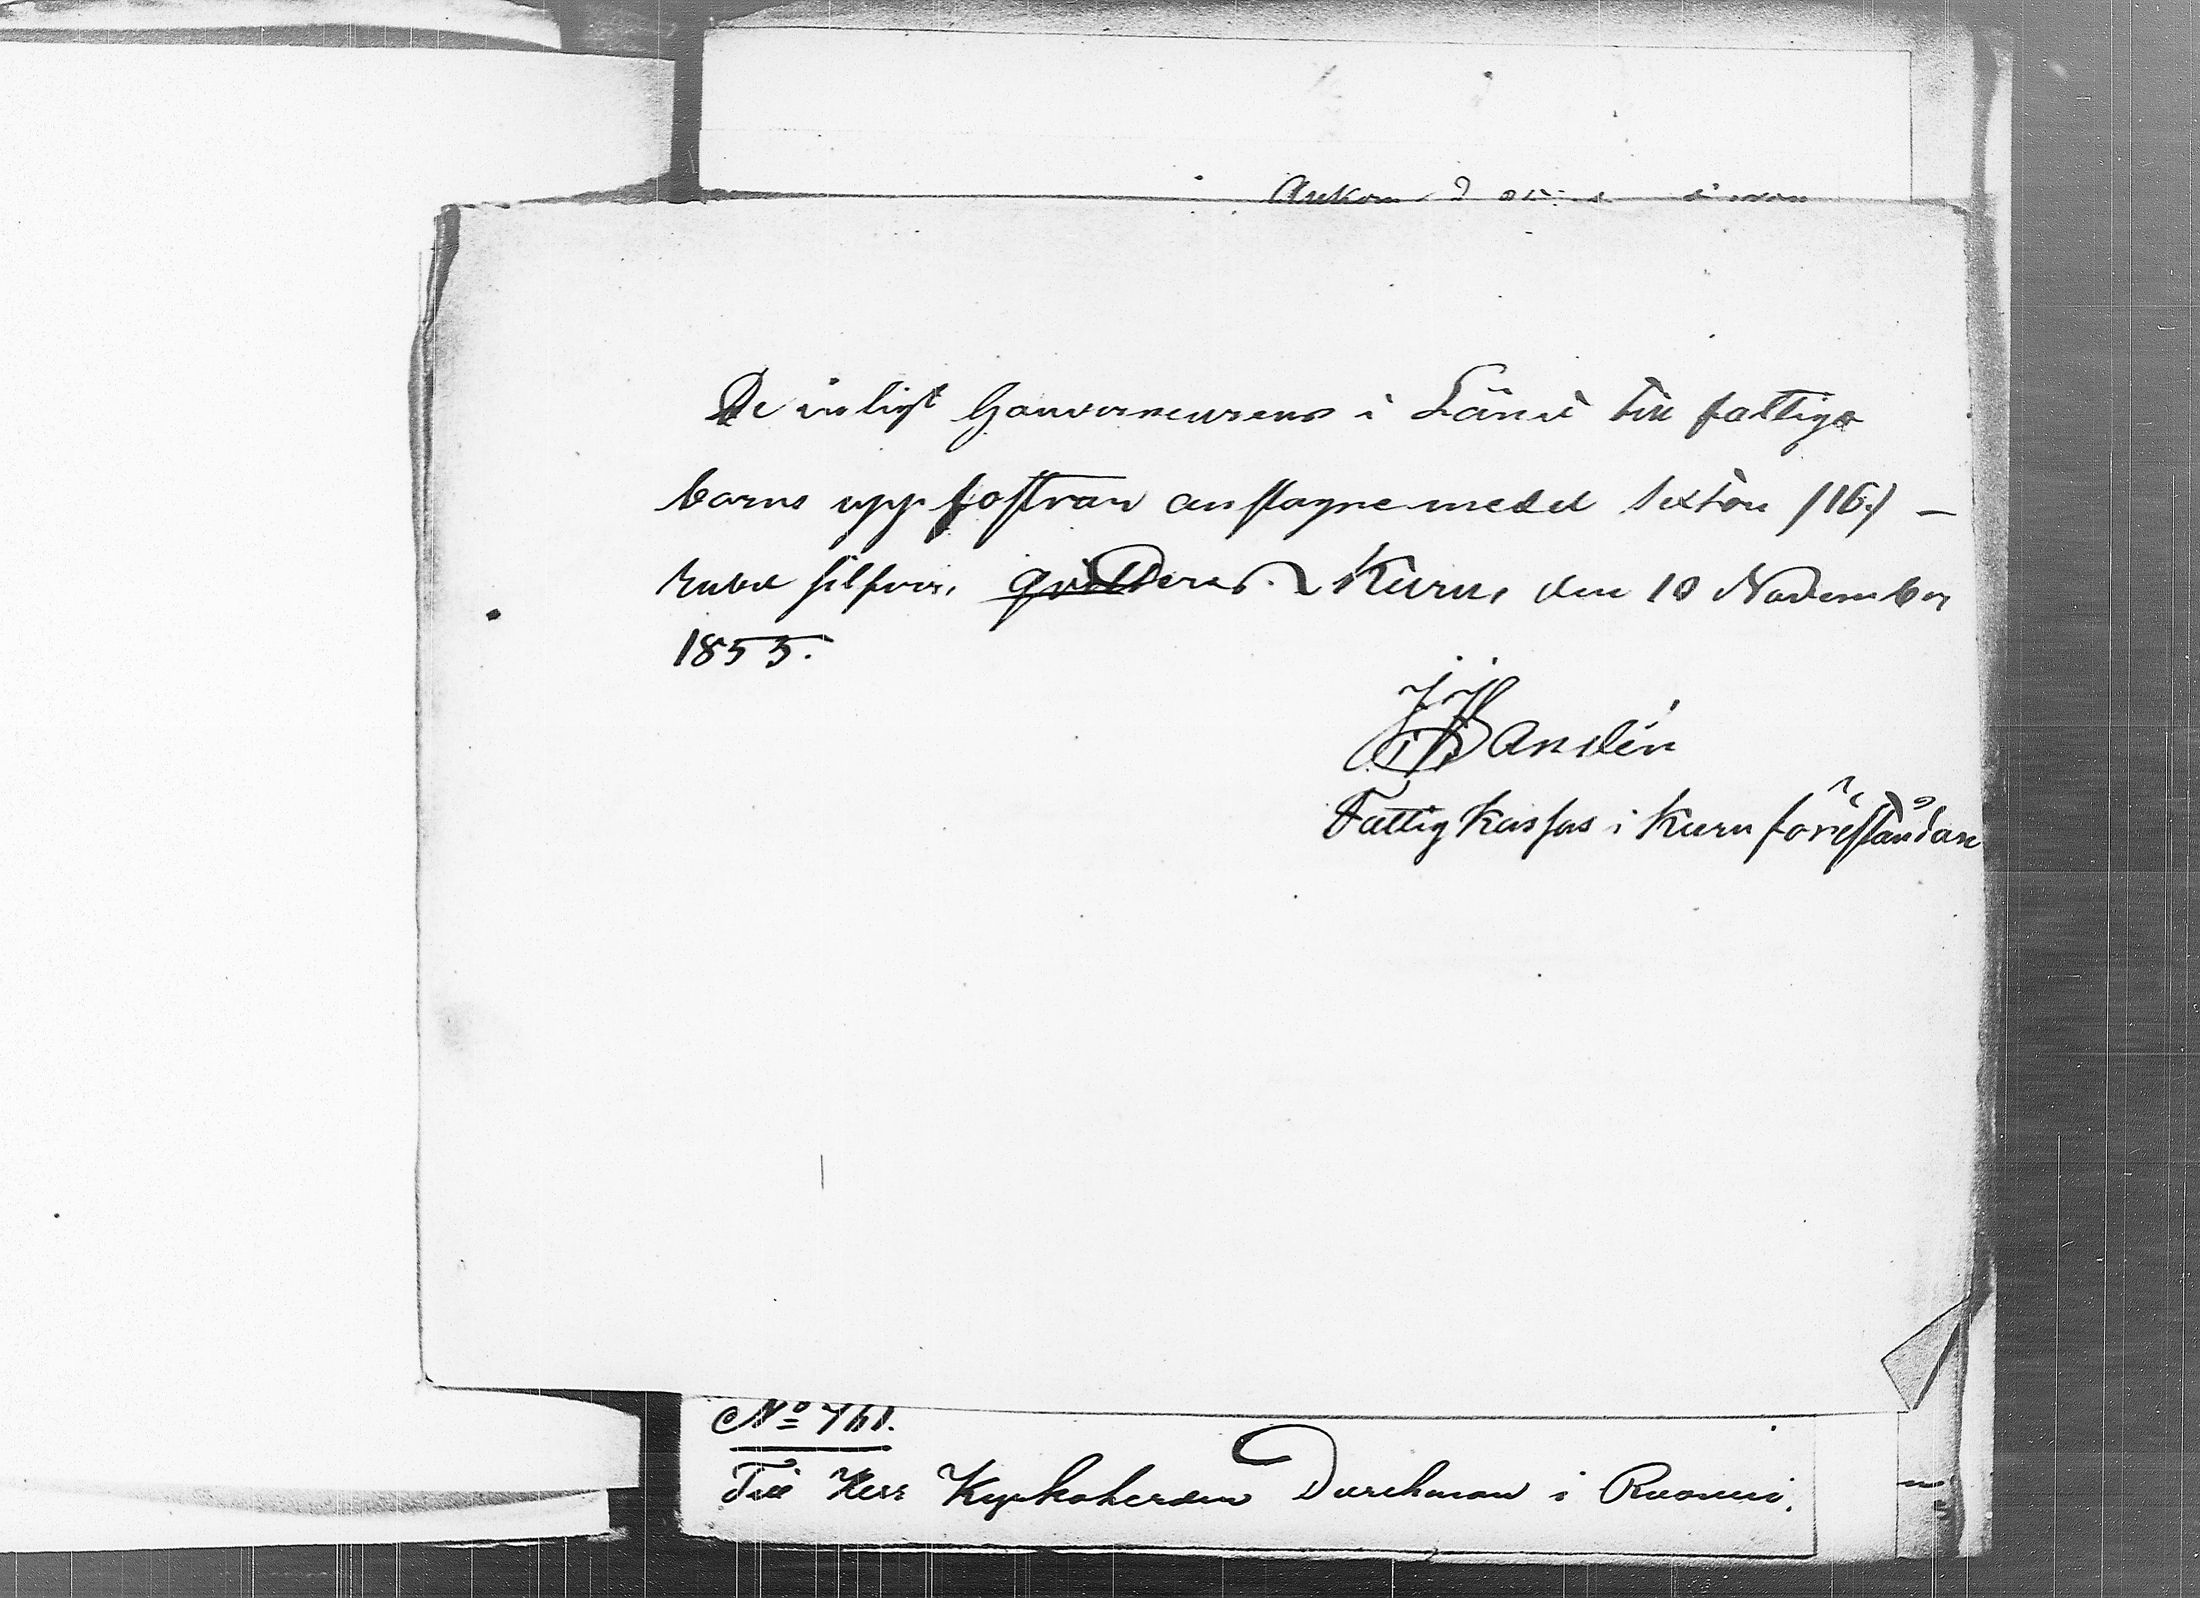 De enligt Gouverneurens i Länet till fattiga
barns uppfostran anslagne medel sexton /16/ –
rubel silfver, qvitteras. Kuru, den 10 November
1855.
Sandén
Fattig kassas i Kuru föreståndare
No 761.
Till Herr Kyrkoherden Durchman i Ruovesi.